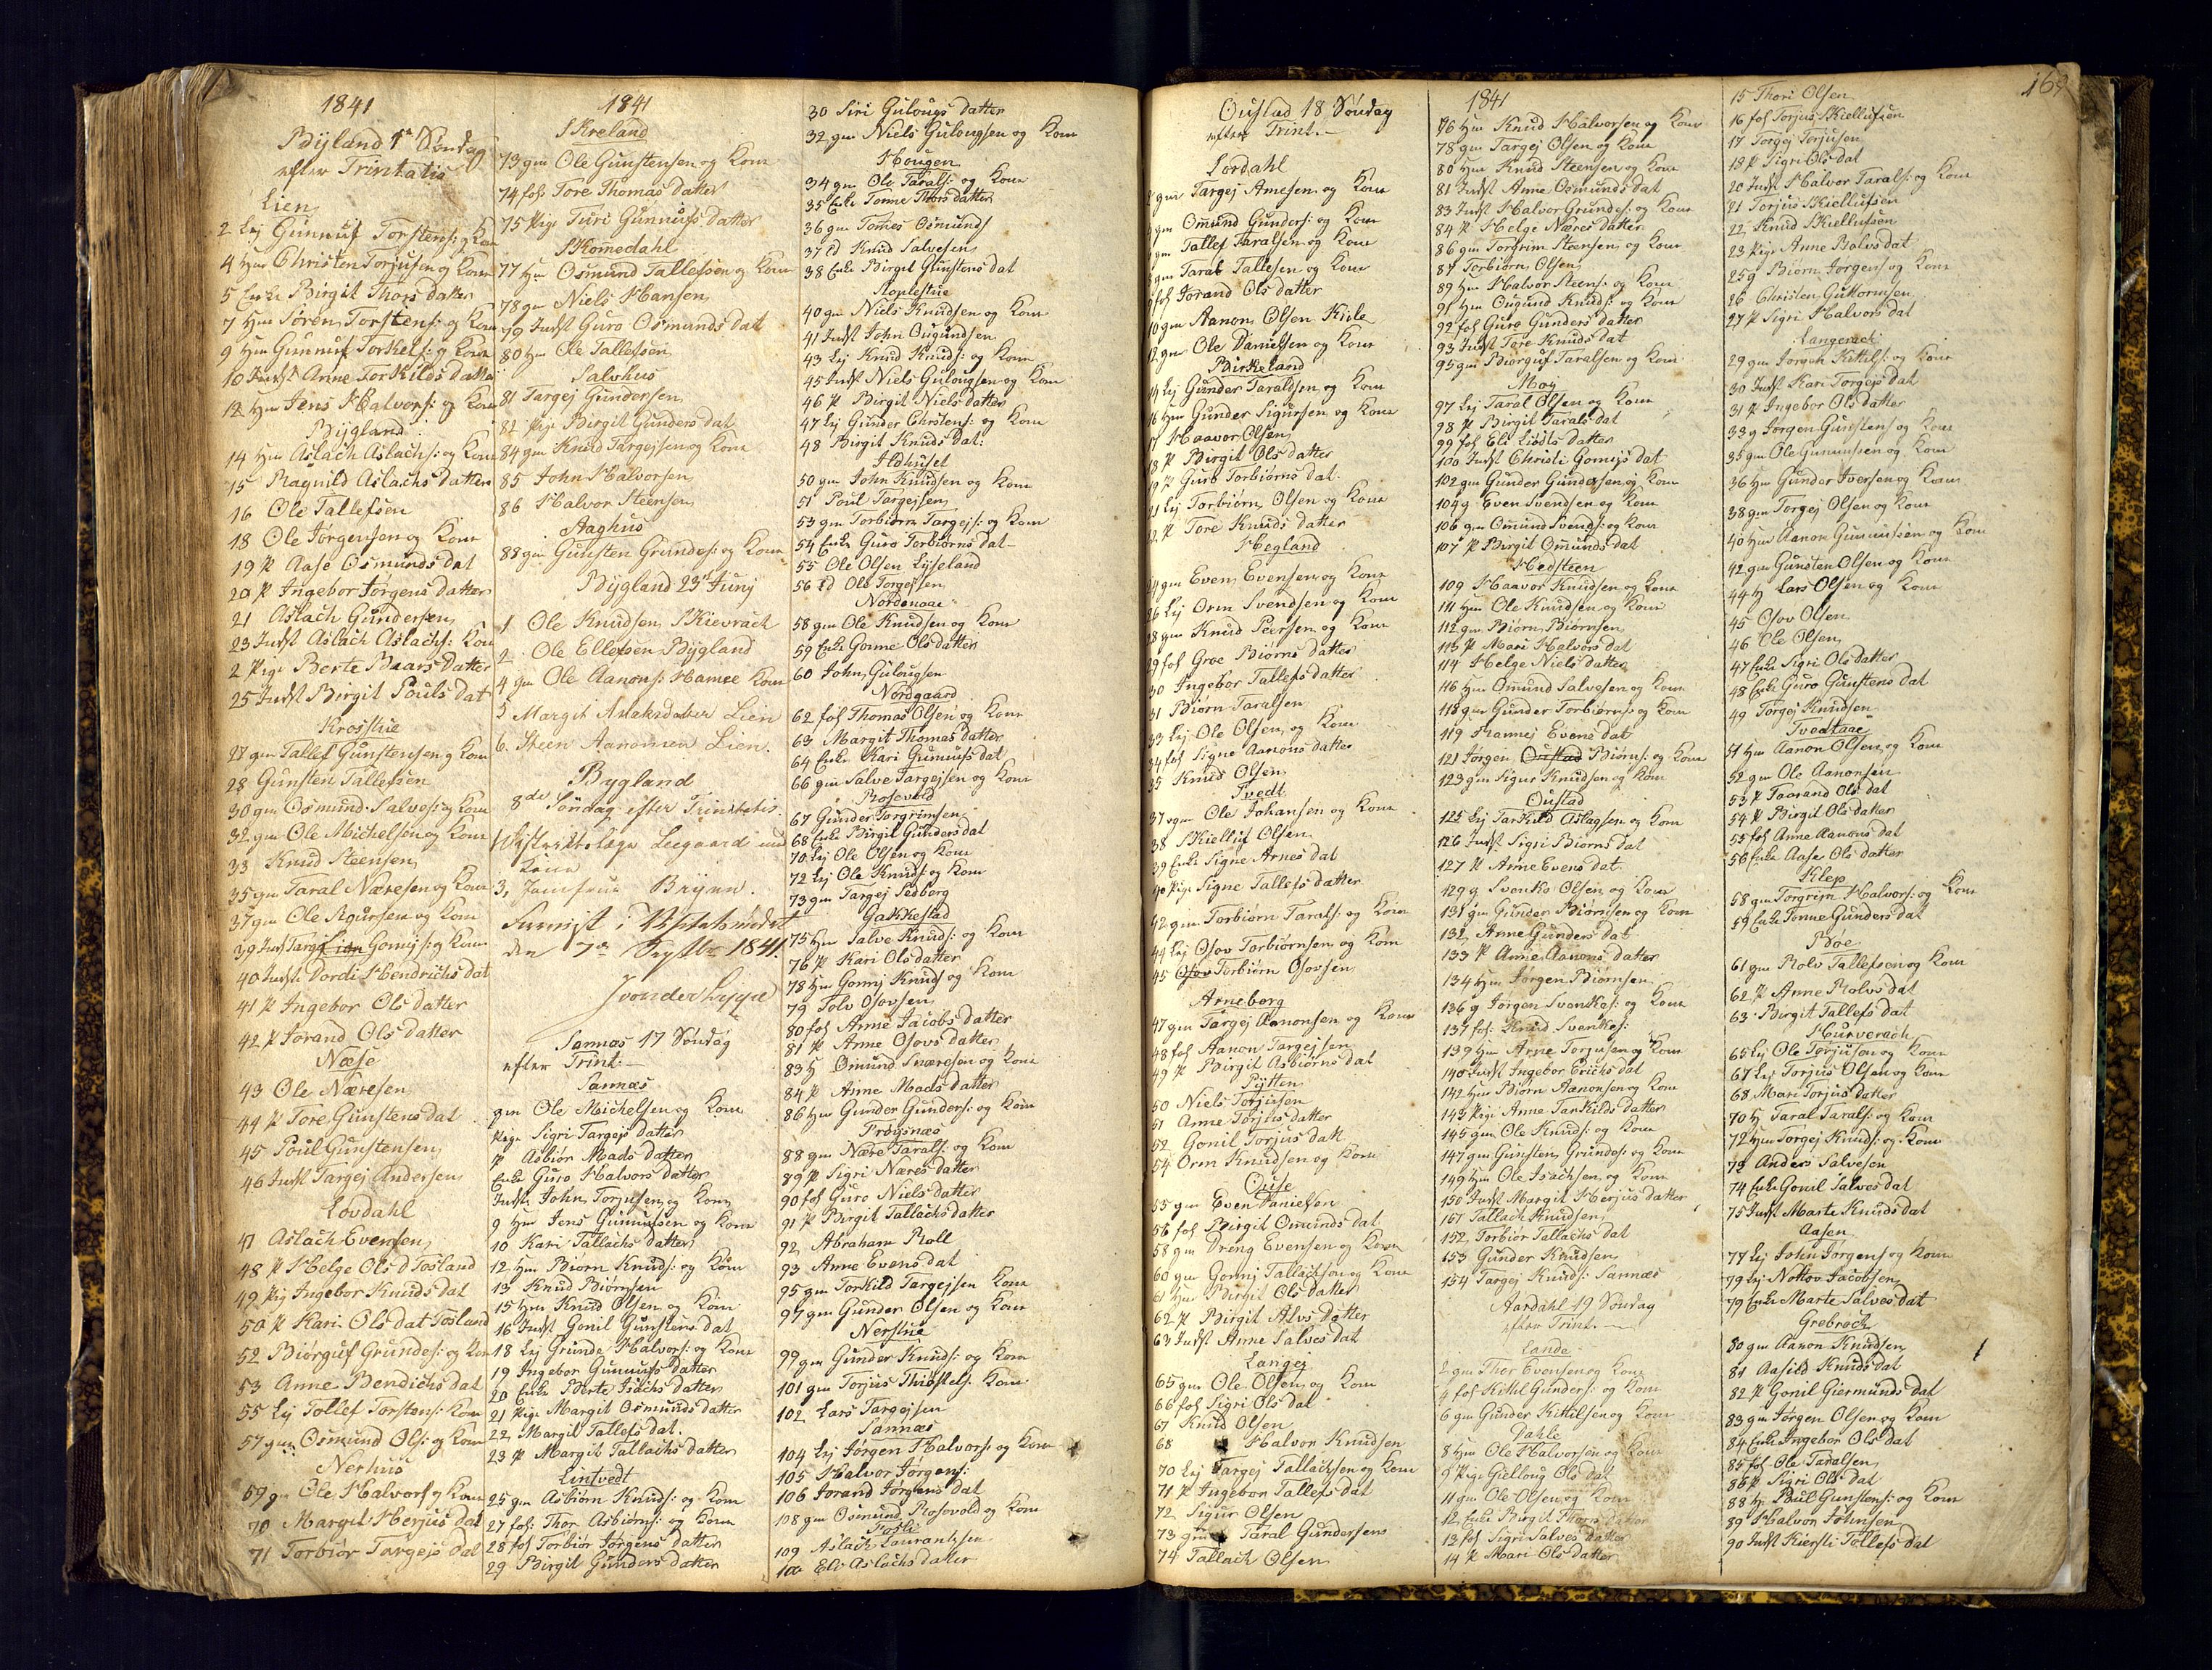 1841
Bÿland 1ˢᵗ Søndag
efter Trinitatis
Lien
2 Lej Gunnuf Torstens: og Kone
4 Hm Christen Torjusen og Konen
5 Enke Birgit Thors datter
7 Hm Søren Torstens: og Kone
9 Hm Gunnuf Torkels: og Kone
10 Indst Anne Torkilds datter
12 Hm Jens Halvors: og Kone
Bÿgland
14 Hm Aslach Aslachs: og Kone
15 Ragnild Aslachs datter
16 Ole Tallefsen
18 Ole Jørgensen og Kone
19 P Aase Osmunds dat
20 P Ingebor Jørgens datter
21 Aslach Gundersen
23 Indst Aslach Aslachs: Kone
2 Pige Berte Baars datter
25 Indst Birgit Pouls dat
Krosstue
27 gm Tallef Gunstensen og Kone
28 Gunsten Tallefsen
30 gm Osmund Salves: og Kone
32 gm Ole Michelsen og Kone
33 Knud Steensen
35 gm Taral Næresen og Kone
37 gm Ole Sigursen og Kone
39 Indst Targej Lien Gomnjs: og Kone
40 Indst Dordi Hendrichs dat
41 P Ingebor Ols datter
42 P Jorand Ols datter
Næse
43 Ole Næresen
44 P Tore Gunstens dat
45 Poul Gunstensen
46 Indst Targej Andersen
Lovdahl
47 Aslach Evensen
48 P Helge Ols d Tosland
49 Pig Ingebor Knuds dat
50 P Kari Ols dat Tosland
52 Biørguf Grundes: og Kone
53 Anne Bendichs dat
55 Lej Tollef Torstens: Kone
57 gm Osmund Ols: og Kone
Nerhus
59 gm Ole Halvors og Kone
70 Margit Herjus dat
71 Torbiør Targejs dat
1841
Skreland
73 gm Ole Gunstensen og Kone
74 fos: Tore Thomas datter
75 Pige Turi Gunnufs datter
Skomedahl
77 Hm Osmund Tallefsen og Kone
78 gm Niels Hansen
79 Indst Guro Osmunds dat
80 Hm Ole Tallefsen
Salvhus
81 Targej Gundersen
82 Pige Birgit Gunders dat
84 gm Knud Targejsen og Kone
85 John Halvorsen
86 Halvor Steensen
Aaghus
88 gm Gunsten Grundes: og Kone
Bÿgland 23ᵈ Junj
1 Ole Knudsen Skievrach
2 Ole Ellefsen Bÿgland
4 gm Ole Aanons: Hamre Kone
5 Margit Aslaksdatter Lien
6. Steen Aanonsen Lien.
Bygland
8ᵈᵉ Søndag efter Trinitatis.
Distriktslæge Leegaard med
Kone
3, Jomfrue Bryen.
den 7ᵈᵉ Septbr 1841.
Sannæs 17 Søndag
efter Trint:
Sannæs
gm Ole Michelsen og Kone
Pige Sigri Targejs datter
P Asbiør Mads datter
Enke Guro Halvors datter
Indst: John Torjusen og Kone
9 Hm Jens Gunnufsen og Kone
10 Kari Tallachs datter
12 Hm Biørn Knuds: og Kone
13 Knud Biørnsen
15 Hm Knud Olsen og Kone
16 Indst Gonil Gunstens dat
18 Lej Grunde Halvors: og Kone
19 Ingebor Gunnufs datter
20 Enke Berte Isachs datter
21 Pige Margit Osmunds datter
22 Margit Tallefs dat.
23 P Margit Tallachs datter
Lintvedt
25 gm Asbiørn Knuds: og Kone
27 fos: Thor Asbiørns: og Kone
28 fos Torbiør Jørgens datter
29 Birgit Gunders datter
30 Siri Gulougs datter
32 gm Niels Gulougsen og Kone
Hougen
34 gm Ole Tarals: og Kone
35 Enke Tonne Thors datter
36 gm Tomes Osmunds
37 d Knud Salvesen
38 Enke Birgit Gunstens dat
40 gm Niels Knudsen og Kone
41 Indst John Ougundsen
43 Lej Knud Knuds: og Kone
45 Indst Niels Gulougsen og Kone
46 P Birgit Niels datter
47 Lej Gunder Christens: og Kone
48 Birgit Knuds dat:
Ildhuset
50 gm John Knudsen og Kone
51 Poul Targejsen
53 gm Torbiørn Targejs: og Kone
54 Enke Guro Torbiørns dat
55 Ole Olsen Lyseland
56 d Ole Torgejsen
Nordenaae
58 gm Ole Knudsen og Kone
59 Enke Gonne Ols datter
60 John Gulougsen
Nordgaard
62 fos Thomas Olsen og Kone
63 Margit Thomas datter
64 Enke Kari Gunnufs dat
66 gm Salve Targejsen og Kone
Rosevold
67 Gunder Torgrimsen
68 Enke Birgit Gunders dat
70 Lej Ole Olsen og Kone
72 Lej Ole Knuds: og Kone
73 gm Targej Sedberg
Gakkestad
75 Hm Salve Knuds: og Kone
76 P Kari Ols datter
78 Hm Gomnj Knuds og Kone
79 Tolv Osovsen
80 fos Anne Jacobs datter
81 P Anne Osovs datter
83 H Omund Snaresen og Kone
84 P Anne Mads datter
86 Hm Gunder Gunders: og Kone
Frøysnæs
88 gm Nære Tarals: og Kone
89 P Sigri Næres datter
90 fos Guro Niels datter
91 P Birgit Tallachs datter
92 Abraham Roll
93 Anne Evens dat
95 gm Torkild Targejsen Kone
97 gm Gunder Olsen og Kone
Nerstue
99 gm Gunder Knuds: og Kone
101 gm Torjus Thiøstels: Kone
102 Lars Targejsen
Sannæs
104 Lej Jørgen Halvors: og Kone
105 Halvor Jørgens:
106 Jorand Jørgens dat
108 gm Osmund Rosevold og Kone
109 Aslach Laurantsen
100 Eli Aslachs datter
169
Oustad 18 Søndag
efter Trint.
Lordahl
gm Targej Arnesen og Kone
gm Omund Gunders: og Kone
gm Tallef Taralsen og Kone
gm Taral Tallesen og Kone
fos Jorand Ols datter
10 gm Aanon Olsen Kiile
12 gm Ole Danielsen og Kone
Birkeland
14 Lej Gunder Taraldsen og Kone
16 Hm Gunder Sigursen og Kone
17 Haavor Olsen
18 P Birgit Ols datter
19 P Guro Torbiørns dat
21 Lej Torbiørn Olsen og Kone
22 P Tore Knuds datter
Hegland
24 gm Even Evensen og Kone
26 Lej Orm Svendsen og Kone
28 gm Knud Peersen og Kone
29 fos Groe Biørns datter
30 Ingebor Tallefs datter
31 Biørn Taralsen
33 Lej Ole Olsen og Kone
34 fos Signe Aanons datter
35 Knud Olsen
Tvedt
37 gm Ole Johansen og Kone
38 Skielluf Olsen
39 Enke Signe Arnes dat
40 Pige Signe Tallefs datter
42 gm Torbiørn Tarals: og Kone
44 Lej Osov Torbiørnsen og Kone
45 Osov Torbiørn Osovsen
Arneborg
47 gm Targej Aanonsen og Kone
48 fos Aanon Targejsen
49 P Birgit Asbiørns dat
Pytten
50 Niels Torjusen
51 Anne Torjus datter
52 Gonil Torjus dat
54 Orm Knudsen og Kone
Ouse
55 gm Even Danielsen
56 fos Birgit Omunds dat
58 gm Dreng Evensen og Kone
60 gm Gomnj Tallachsen og Kone
61 Hm Birgit Ols datter
62 P Birgit Alvs datter
63 Indst Anne Salves dat
Langej
65 gm Ole Olsen og Kone
66 fos Sigri Ols dat
67 Knud Olsen
68 Halvor Knudsen
70 Lej Targej Tallachsen og Kone
71 P Ingebor Tallefs dat
72 Sigur Olsen
73 gm Taral Gundersens
74 Tallach Olsen
1841
76 Hm Knud Halvorsen og Kone
78 gm Targej Olsen og Kone
80 Hm Knud Steensen og Kone
81 Indst Anne Osmunds dat
83 Indst Halvor Grundes: og Kone
84 P Helge Næres datter
86 gm Torgrim Steensen og Kone
87 Torbiørn Olsen
89 Hm Halvor Steens: og Kone
91 Hm Ougund Knuds: og Kone
92 fos Guro Gunders datter
93 Indst Tore Knuds dat
95 gm Biørguf Taralsen og Kone
Moy
97 Lej Taral Olsen og Kone
98 P Birgit Tarals dat
99 fos Eli Lidds datter
100 Indst Christi Gomnjs dat
102 gm Gunder Gundersen og Kone
104 g Even Svendsen og Kone
106 gm Omund Svends: og Kone
107 P Birgit Omunds dat
Hedsteen
109 Haavor Knudsen og Kone
111 Hm Ole Knudsen og Kone
112 gm Biørn Biørnsen
113 P Mari Halvors dat
114 Helge Niels datter
116 Hm Omund Salvesen og Kone
118 gm Gunder Torbiørns: og Kone
119 Rannej Evens dat
121 Jørgen Oustad Biørns: og Kone
123 gm Sigur Knudsen og Kone
Oustad
125 Lej Tarkild Aslagsen og Kone
126 Indst Sigri Biørns dat
127 P Anne Evens dat
129 g Svenke Olsen og Kone
131 gm Gunder Biørnsen og Kone
132 Anne Gunders dat
133 P Anne Aanons datter
134 Hm Jørgen Biørnsen
136 g Jørgen Svenkes: og Kone
137 fos: Knud Svenkes:
139 Hm Arne Torjusen og Kone
140 Indst Ingebor Erichs dat
142 Hm Biørn Aanonsen og Kone
143 Pige Anne Tarkilds datter
145 gm Ole Knuds: og Kone
147 gm Gunsten Grundes: og Kone
149 Hm Ole Isachsen og Kone
150 Indst Margit Herjus datter
151 Tallach Knudsen
152 Torbiør Tallachs dat
153 Gunder Knudsen
154 Targej Knuds: Sannæs
Aardahl 19 Søndag
efter Trint.
Lande
2 gm Thor Evensen og Kone
4 fos Kittel Gunders: og Kone
6 gm Gunder Kittilsen og Kone
Dahle
8 Hm Ole Halvorsen og Kone
9 Pige Gielloug Ols dat
11 gm Ole Olsen og Kone
12 Enke Birgit Thors datter
13 fos Sigri Salves datter
14 P Mari Ols datter
15 Thori Olsen
16 fos Torjus Skiellufsen
17 Torgej Torjusen
18 P Sigri Ols dat
20 Indst Halvor Tarals: og Kone
21 Torjus Skiellufsen
22 Knud Skiellufsen
23 Pige Anne Rolvs dat
25 g Biørn Jørgens og Kone
26 Christen Guttormsen
27 P Sigri Halvors dat
Langerach
29 gm Jørgen Kittils: og Kone
30 Indst Kari Torgejs dat
31 P Ingebor Ols datter
33 g Jørgen Gunstens og Kone
35 gm Ole Gunnufsen og Kone
36 Hm Gunder Iversen og Kone
38 gm Torgej Olsen og Kone
40 Hm Aanon Gunnufsen og Kone
42 gm Gunsten Olsen og Kone
44 H Lars Olsen og Kone
45 Osov Olsen
46 Ole Olsen
47 Enke Sigri Ols datter
48 Enke Guro Gunstens dat
49 Torgej Knudsen
Tvedtaae
51 Hm Aanon Olsen og Kone
52 gm Ole Aanonsen
53 P Taarand Ols dat
54 P Birgit Ols datter
55 fos Anne Aanons dat
56 Enke Aase Ols datter
Klep
58 gm Torgrim Halvors: og Kone
59 Enke Tonne Gunders dat
Bøe
61 gm Rolv Tallefsen og Kone
62 P Anne Rolvs dat
63 Birgit Tallefs dat
Hurverach
65 Lej Ole Torjuson og Kone
67 Lej Torjus Olsen og Kone
68 Mari Torjus datter
70 H Taral Tarals: og Kone
72 Hm Torgej Knuds: og Kone
73 Anders Salvesen
74 Enke Gonil Salves dat
75 Indst Marte Knuds dat
Aasen
77 Lej John Jørgens og Kone
79 Lej Nottov Jacobsen
79 Enke Marte Salves dat
Grebrock
80 gm Aanon Knudsen
81 Aasild Knuds dat
82 P Gonil Giermunds dat
83 gm Jørgen Olsen og Kone
84 Enke Ingebor Ols dat
85 fos Ole Tadalsen
86 P Sigri Ols dat
88 Hj Poul Gunstens: og Kone
89 Halvor Johnsen
90 Indst Kiersti Tollefs dat